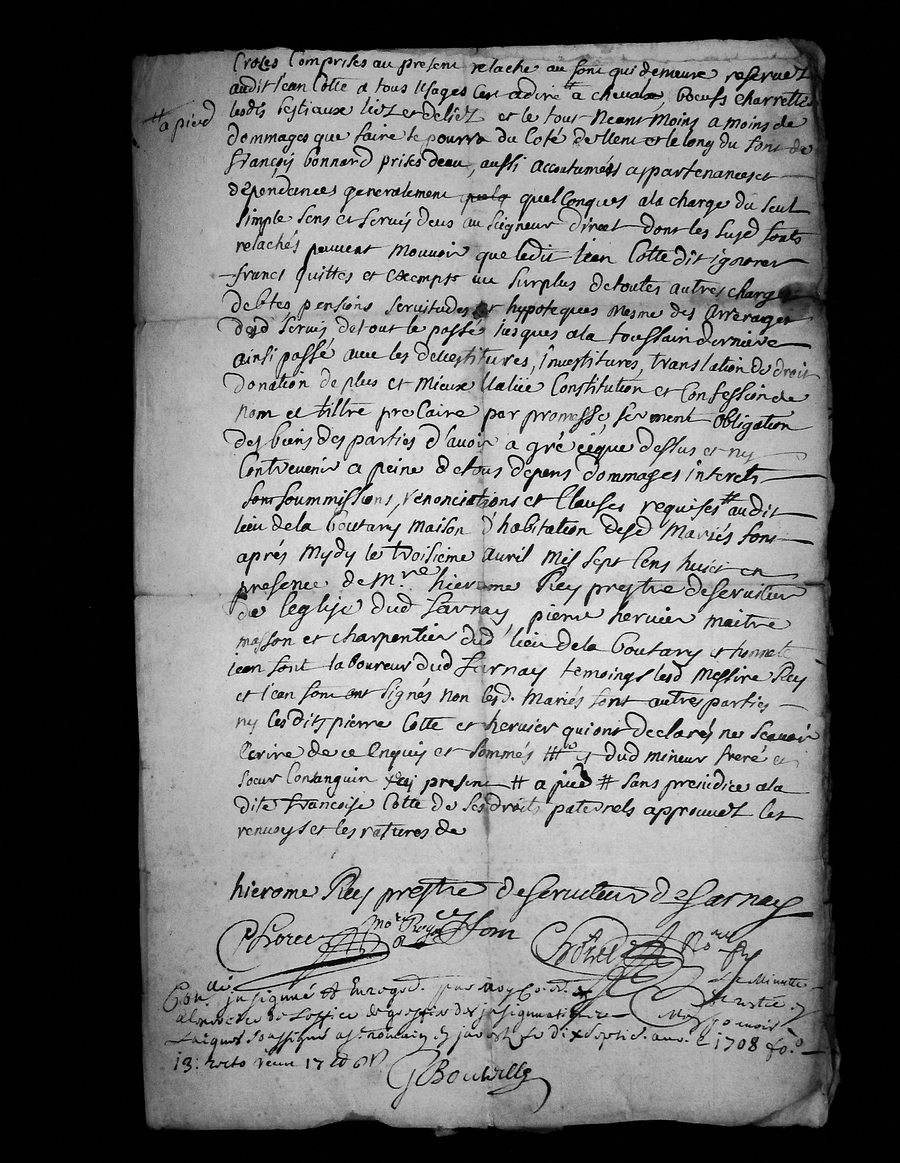 Croles Comprises au present relache au font qui demeure reservez
audit Jean Cotte a tous usages Cest adire # a chevala, boeufs charrette
# a pied
lesdts bestiaux liez et deliez et le tout neant moins a moins de
dommages que faire se pourra du Coté de et le long du font de
françoy bonnard prises deau, aussi accoutumées appartenances et
dependances generalement quelconques ala charge du seul
simple sens et servis deus au seigneur direct dont les susd fonts
relachés peuvent mouvoir que ledit Jean Cotte dit ignorer
francs quittes et exempts au surplus detoutes autres charges
debtes pensions servitudes et hypoteques mesme des arrerages
desd servis detout le passé jusques ala toussain derniere
ainsi passé avec les devestitures, investitures, translation de droit
donation de plus et mieux Constitution et Confession de
nom et tiltre precaire par promesse, serment obligation
des biens des parties d'avoir a gré ceque dessus et ny
Contrevenir a peine detous depens dommages interets
soummissions, renonciations et Clauses requises # audit
lieu dela boutary maison d'habitation desd Mariés font
aprés mydy le troisieme avril mil sept Cens huict en
presence de Mre hierome Rey prestre deserviteur
de leglise dud Sarnay, pierre hervier maitre
masson et charpentier dud lieu dela boutary et honnete
Jean font laboureur dud Sarnay temoings lesd Messire Rey
et Jean font ont signés non lesd. mariés font autres parties
ny lesdits pierre Cotte et hervier qui ont declarés ne scavoir
Ecrire de ce Enquis et sommés dud mineur frere et
soeur Consanguin present # a pied # sans prejudice ala
dite francoise Cotte de ses droits paternels approuvez les
renvoys et les ratures de
hierome Rey prestre deserviteur de Sarnay
not Royal J font
Minutte
insignué et Enregé par moy
de loffice de greffier des insignuations
soussigné 1708 fo.
13: recto
Boutville